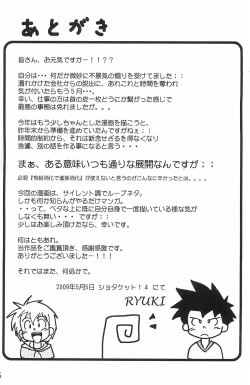 あとがき
皆さん、お元気ですかー！！？？
自分は･･･何だか微妙に不景気の煽りを受けてました；；
潰れかけた会社からの脱出に、あれこれと時間を奪われ
気が付いたらもう5月･･･。
幸い、仕事の方は首の皮一枚どうにか繋がった感じで
最悪の事態は免れましたが。。。
今年はもう少しちゃんとした漫画を描こうと、
昨年末から準備を進めていたんですがねぇ；；
時間的制約から、それは断念せざるを得なくなり
急遽、別の話を作る事になると言う・・・
まぁ、ある意味いつも通りな展開なんですが；；
今回の漫画は、サイレント調でループネタ。
しかも何か知らんがやるだけマンガ。
・・・って、ベタな上に既に自分自身で一度描いている様な気が
しなくも無い・・・ですが；；
少しはお楽しみ頂けたなら、幸いです。
何はともあれ。
当作品をご鑑賞頂き、感謝感激です。
ありがとうございましたー！！！
それではまた、何処かで。
2009年5月5日 ショタケット！4 にて
RYUKI